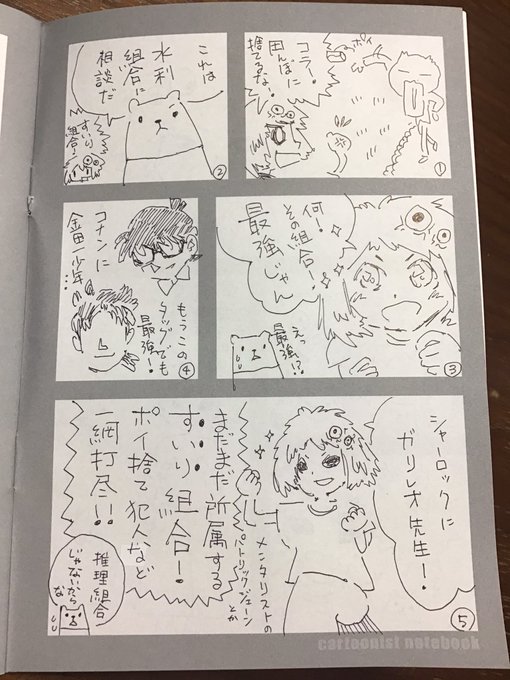 ポイ
コラ!
田んぼに
捨てるな!
①
これは
水利
組合に
相談だ
すいり
組合!
②
何!
その組合!
最強じゃん
えっ
最強!?
③
コナンに
金田一少年…
もうこの
タッグでも
最強!
④
シャーロックに
ガリレオ先生!
メンタリストの
パトリックジェーン
とか
まだまだ所属する
すいり組合!
ポイ捨て犯人など
一網打尽!!
推理組合
じゃないから
な
⑤
cartoonist notebook